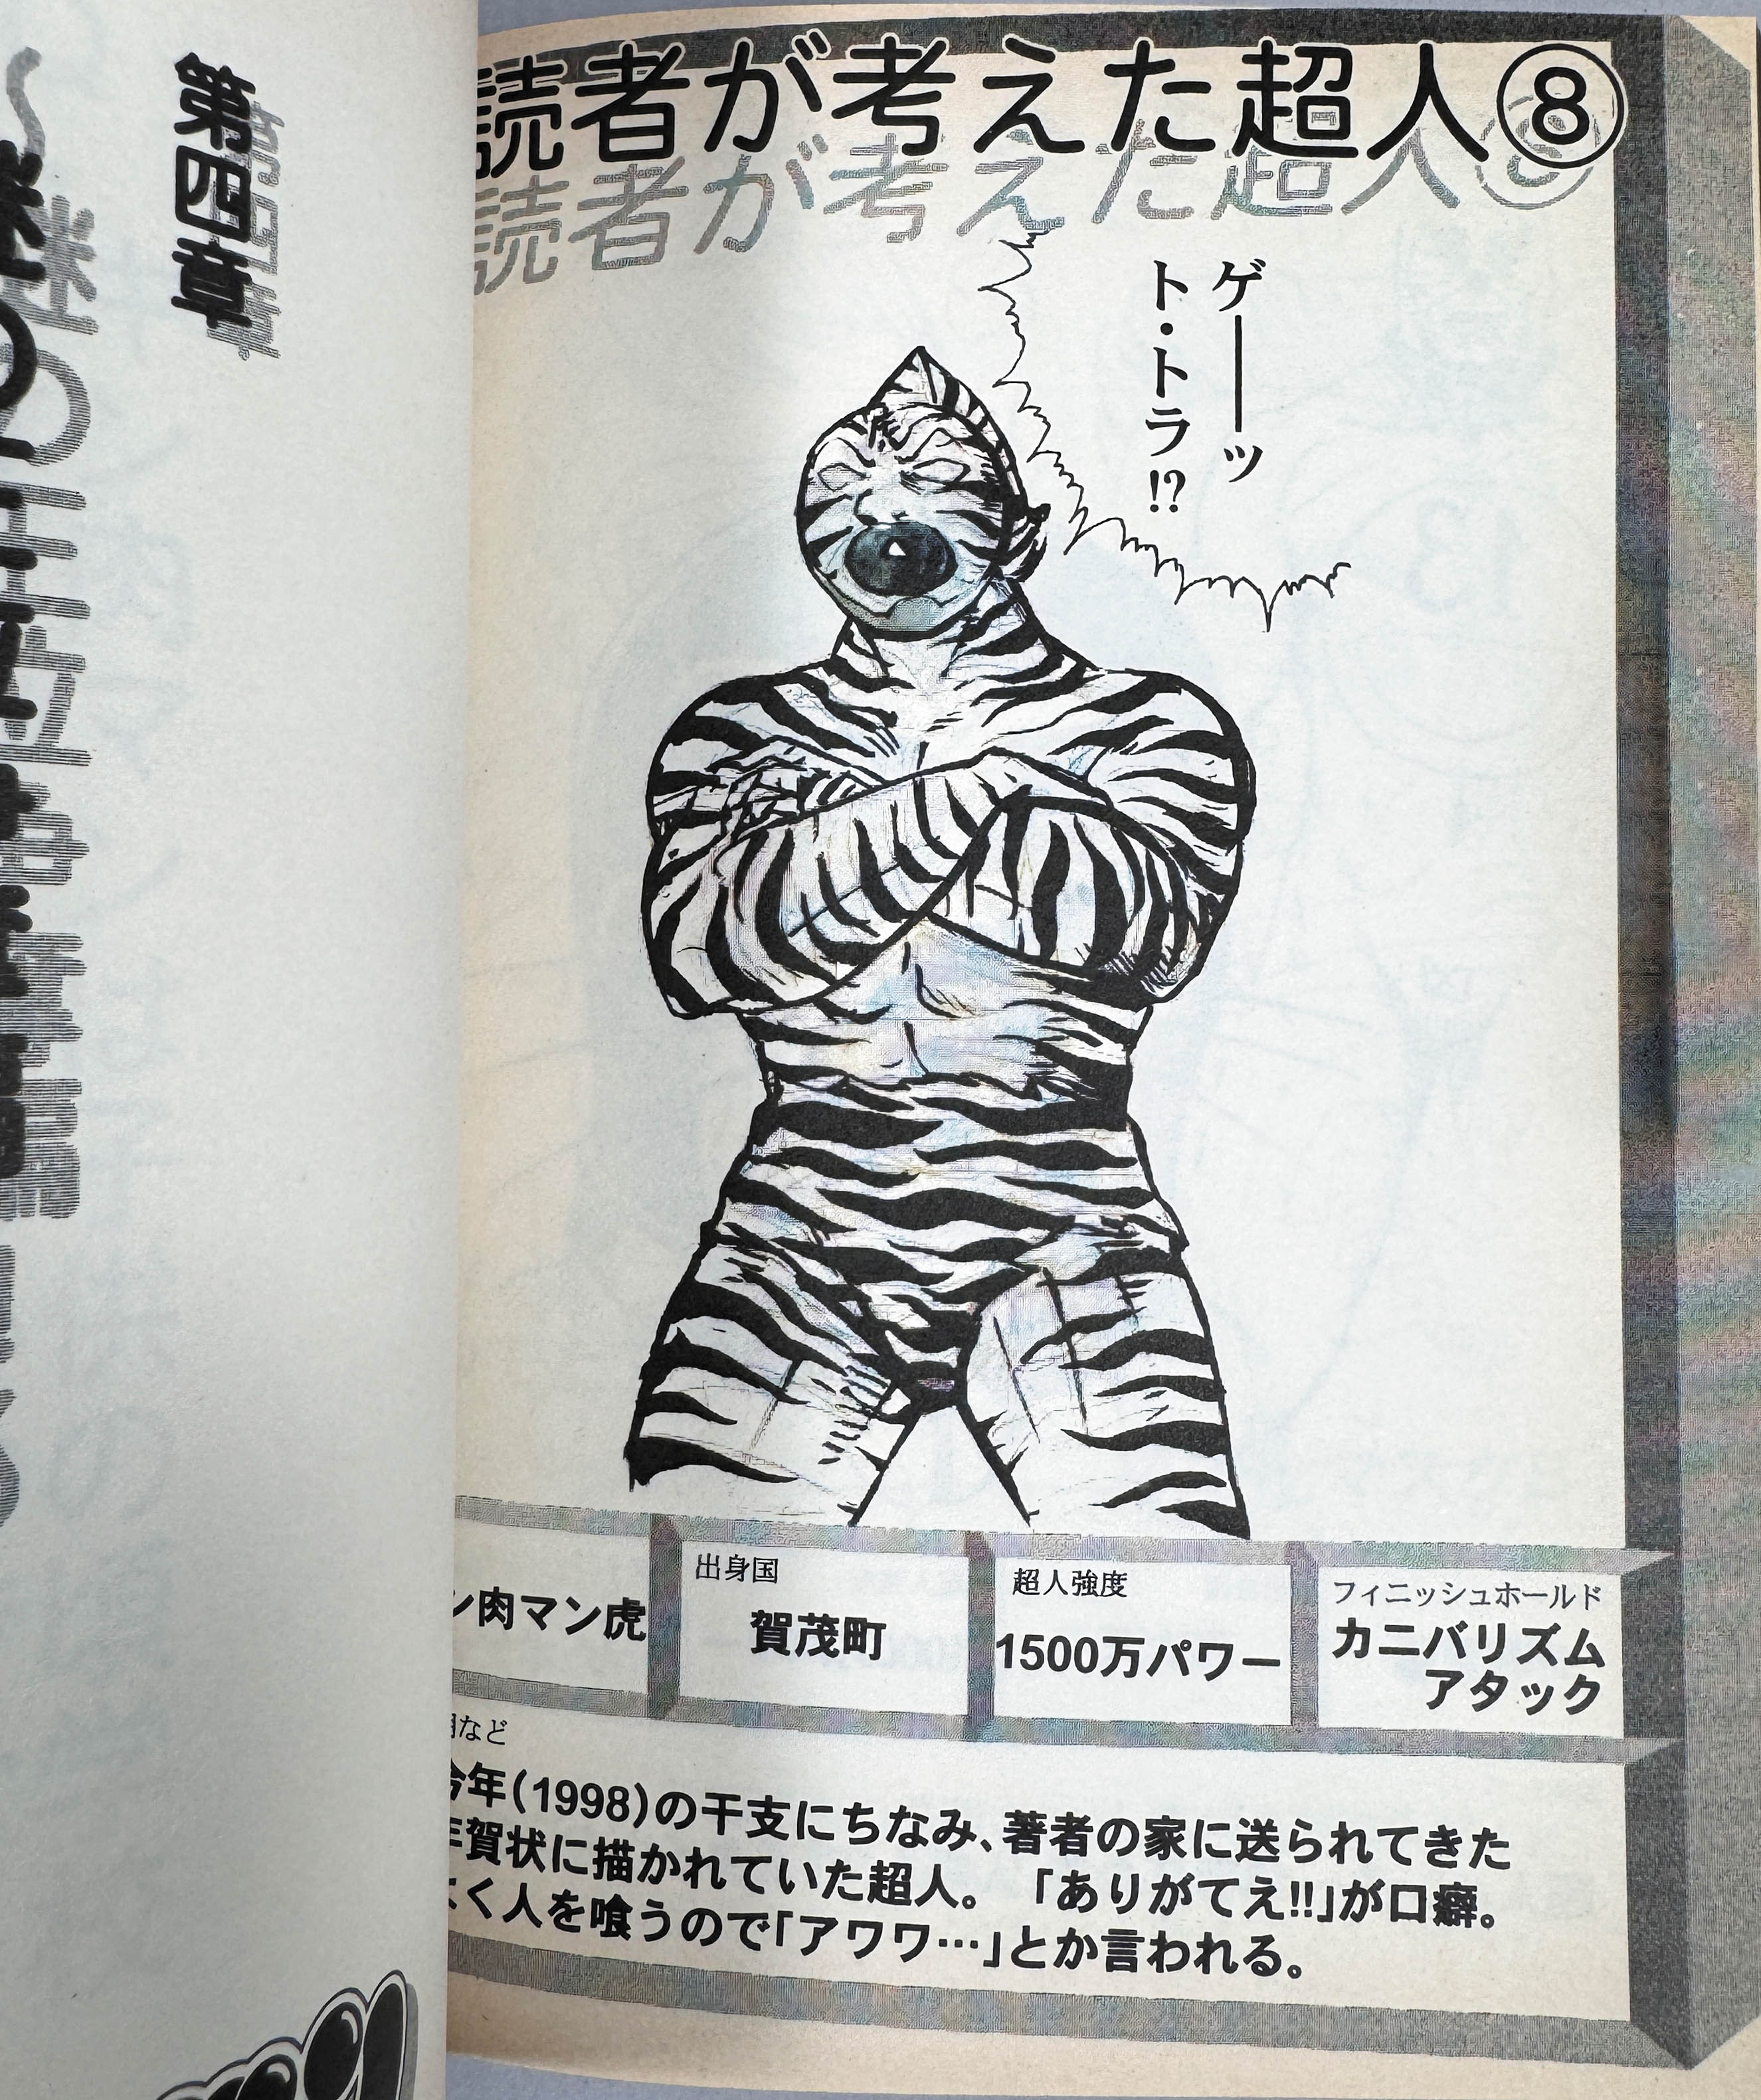 読者が考えた超人⑧
ゲ――ッ
ト・トラ!?
ン肉マン虎
出身国
賀茂町
超人強度
1500万パワー
フィニッシュホールド
カニバリズム
アタック
など
今年(1998)の干支にちなみ、著者の家に送られてきた
年賀状に描かれていた超人。「ありがてえ!!」が口癖。
よく人を喰うので「アワワ…」とか言われる。
第四章
謎の王位